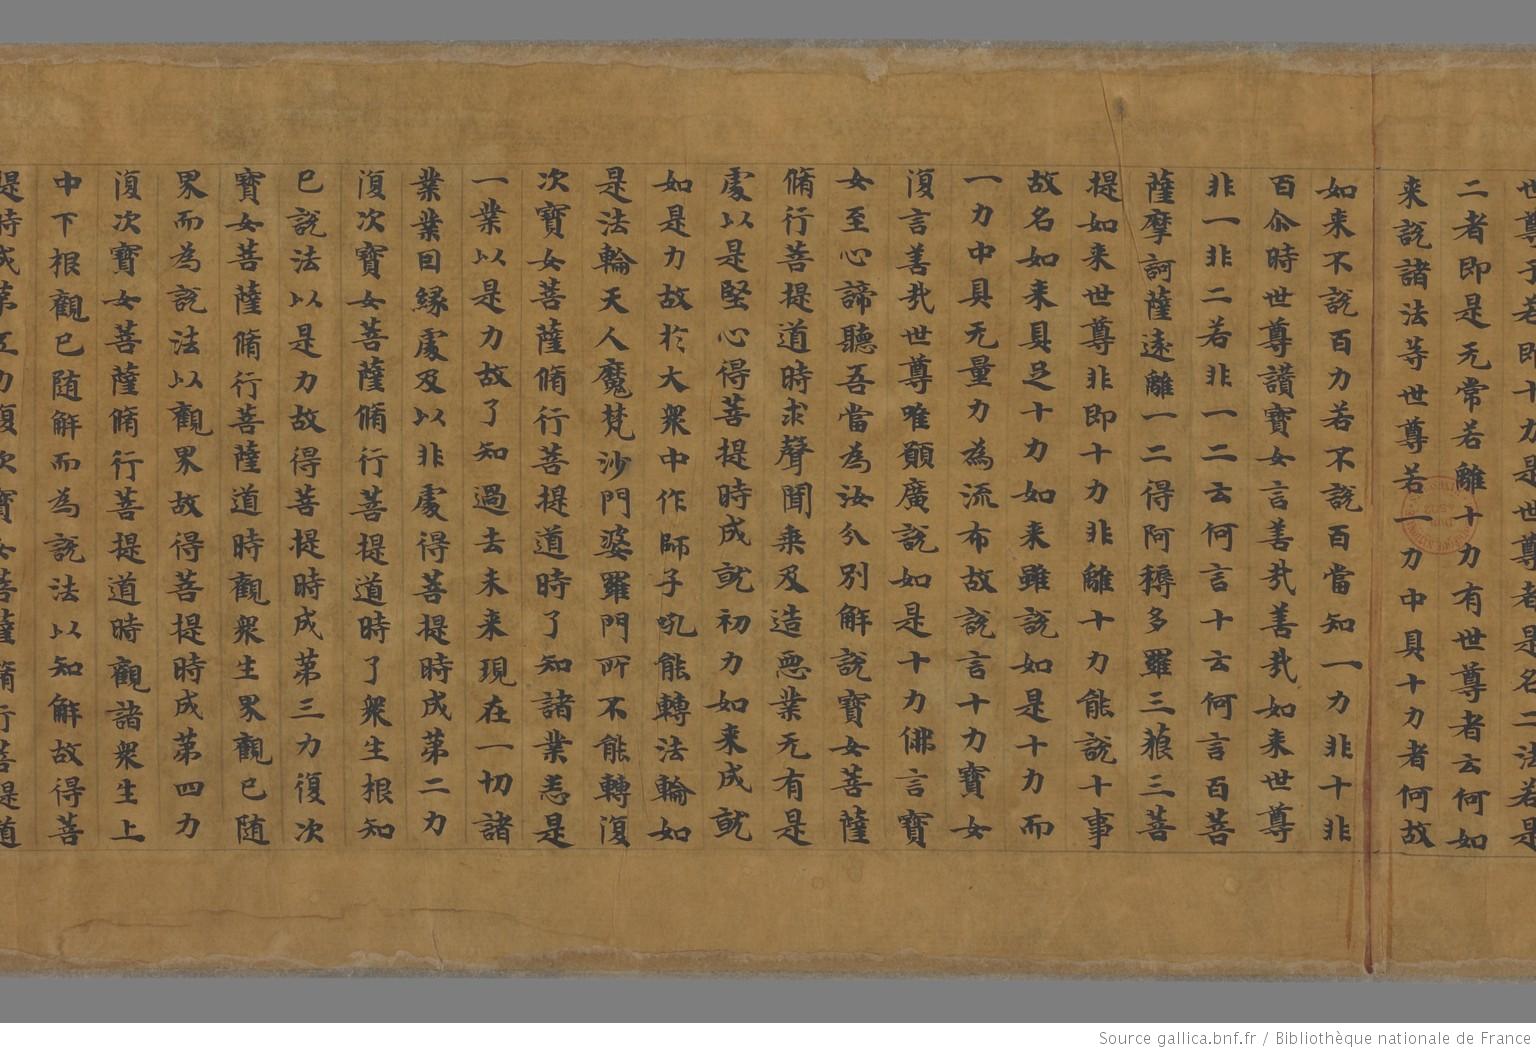 世尊若即十力是世尊者是名二法若是
二者即是无常若離十力有世尊者云何如
来説諸法等世尊若一力中具十力者何故
如来不説百力若不説百當知一力非十非
百尒時世尊讃寶女言善㢤善㢤如来世尊
非一非二若非一二云何言十云何言百菩
薩摩訶薩遠離一二得阿耨多羅三藐三菩
提如来世尊非即十力非離十力能説十事
故名如来具足十力如来雖説如是十力而
一力中具无量力為流布故説言十力寶女
復言善㢤世尊唯願廣説如是十力佛言寶
女至心諦聽吾當為汝分別解説寶女菩薩
脩行菩提道時求聲聞乘及造惡業无有是
處以是堅心得菩提時成就初力如来成就
如是力故於大衆中作師子吼能轉法輪如
是法輪天人魔梵沙門婆羅門所不能轉復
次寶女菩薩脩行菩提道時了知諸業悉是
一業以是力故了知過去未来現在一切諸
業業因緣處及以非處得菩提時成第二力
復次寶女菩薩脩行菩提道時了衆生根知
已説法以是力故得菩提時成第三力復次
寶女菩薩脩行菩薩道時觀衆生界觀已随
界而為説法以觀界故得菩提時成第四力
復次寶女菩薩脩行菩提道時觀諸衆生上
中下根觀已随解而為説法以知解故得菩
提時成第五力復次寶女菩薩脩行菩提道
Source gallica.bnf.fr / Bibliothèque nationale de France